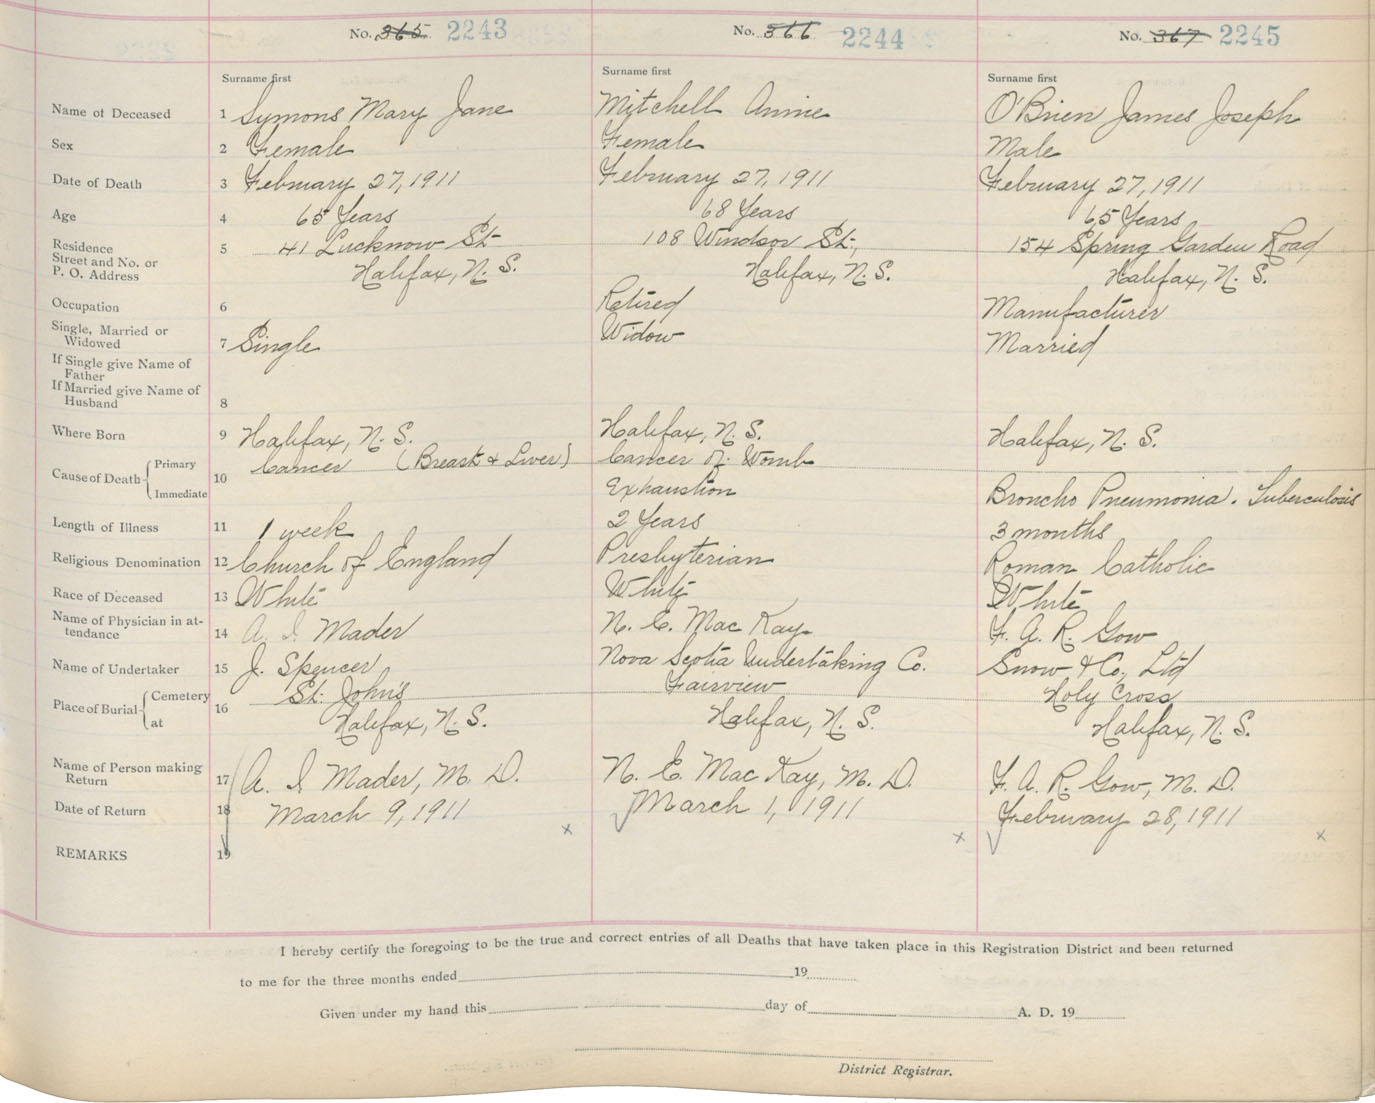 No. 365 2243 No. 366 2244 No. 367 2245
Surname first Surname first Surname first
Name of Deceased 1 Symons Mary Jane Mitchell Annie O'Brien James Joseph
Sex 2 Female Female Male
Date of Death 3 February 27, 1911 February 27, 1911 February 27, 1911
Age 4 65 Years 68 Years 65 Years
Residence 5 41 Lucknow St. 108 Windsor St., 154 Spring Garden Road
Street and No. or
P. O. Address Halifax, N. S. Halifax, N. S. Halifax, N. S.
Occupation 6 Retired Manufacturer
Single, Married or
Widowed 7 Single Widow Married
If Single give Name of
Father
If Married give Name of
Husband 8
Where Born 9 Halifax, N. S. Halifax, N. S. Halifax, N. S.
Primary Cancer (Breast & Liver) Cancer of Womb
Cause of Death 10
Immediate Exhaustion Broncho Pneumonia. Tuberculosis
Length of Illness 11 1 week 2 Years 3 months
Religious Denomination 12 Church of England Presbyterian Roman Catholic
Race of Deceased 13 White White White
Name of Physician in at-
tendance 14 A. I. Mader N. E. Mac Kay F. A. R. Gow
Name of Undertaker 15 J. Spencer Nova Scotia Undertaking Co. Snow & Co., Ltd
Cemetery St. John's Fairview Holy Cross
Place of Burial 16
at Halifax, N. S. Halifax, N. S. Halifax, N. S.
Name of Person making
Return 17 A. I. Mader, M. D. N. E. Mac Kay, M. D. F. A. R. Gow, M. D.
Date of Return 18 March 9, 1911 March 1, 1911 February 28, 1911
x x x
REMARKS 19
I hereby certify the foregoing to be the true and correct entries of all Deaths that have taken place in this Registration District and been returned
to me for the three months ended 19
Given under my hand this day of A. D. 19
District Registrar.